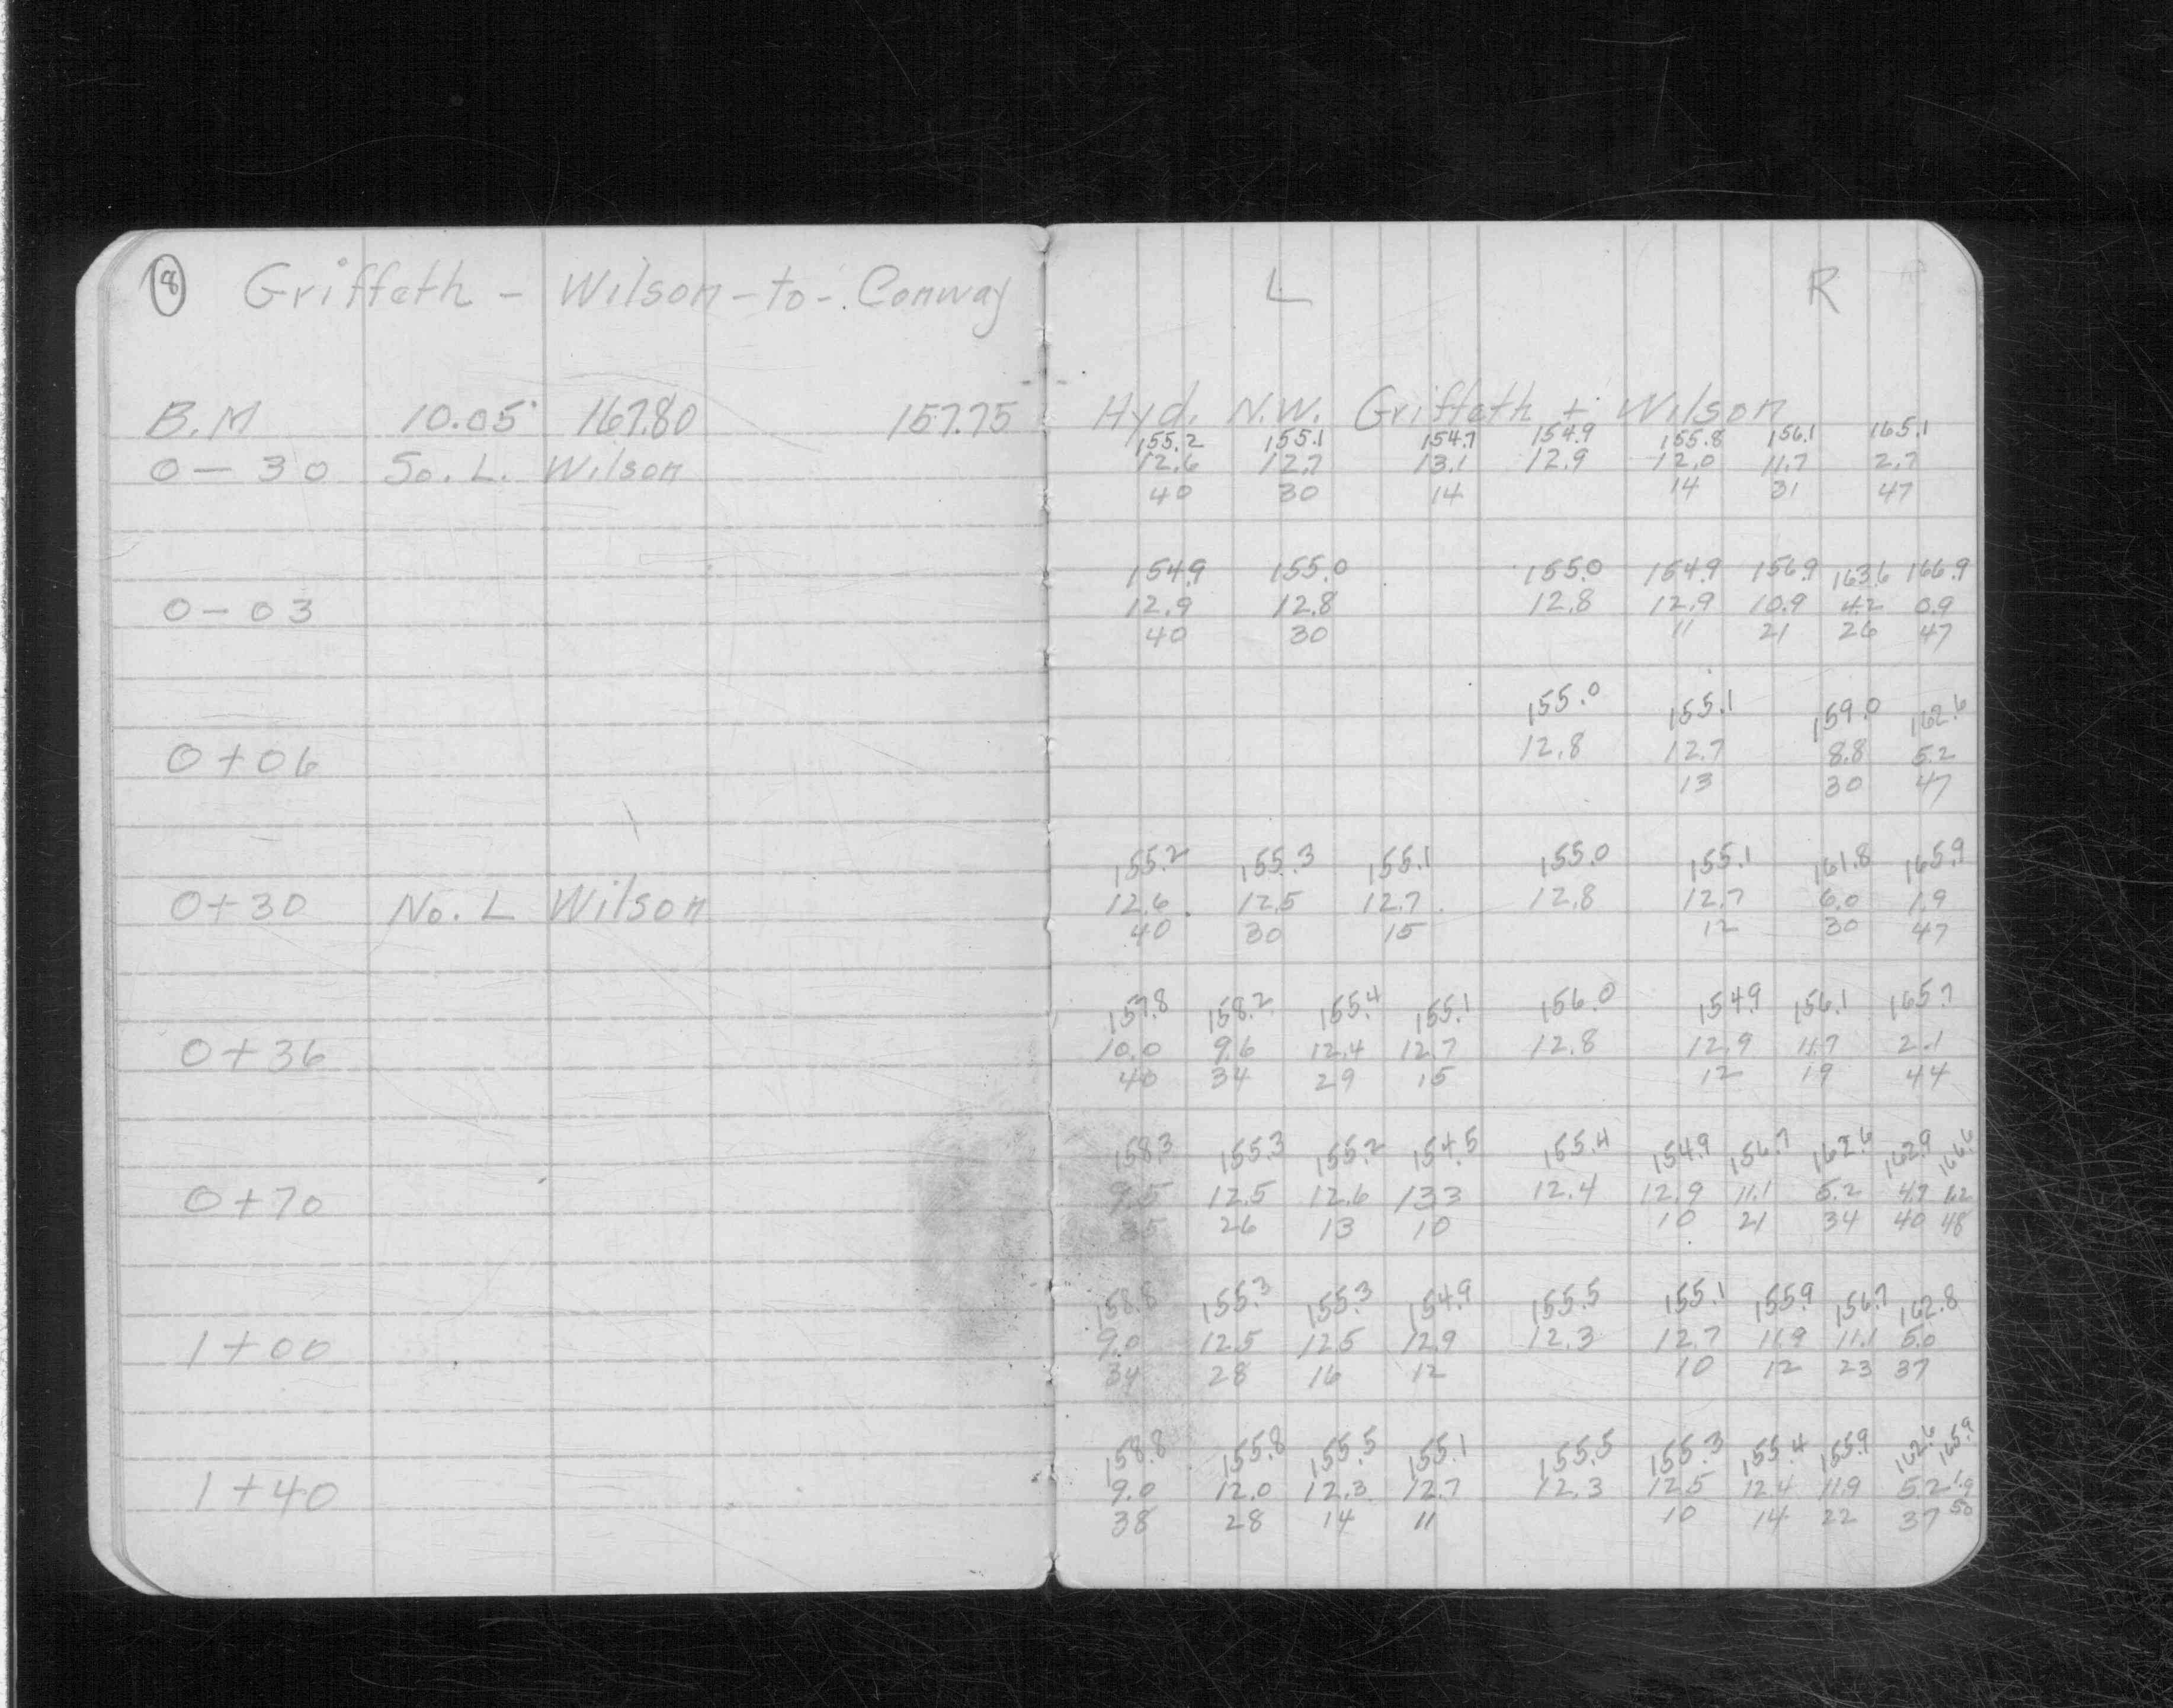 8 Griffeth - Wilson - to - Conway
L R
B.M 10.05 167.80 157.75 Hyd. N.W. Griffeth + Wilson
155.2 155.1 154.7 154.9 155.8 156.1 165.1
0-30 So. L. Wilson 12.6 12.7 13.1 12.9 12.0 11.7 2.7
40 30 14 14 31 47
154.9 155.0 155.0 154.9 156.9 163.6 166.9
0-03 12.9 12.8 12.8 12.9 10.9 4.2 0.9
40 30 11 21 26 47
155.0 155.1 159.0 162.6
0+06 12.8 12.7 8.8 5.2
13 30 47
155.2 155.3 155.1 155.0 155.1 161.8 165.9
0+30 No. L Wilson 12.6 12.5 12.7 12.8 12.7 6.0 1.9
40 30 15 12 30 47
157.8 158.2 155.4 155.1 156.0 154.9 156.1 165.7
0+36 10.0 9.6 12.4 12.7 12.8 12.9 11.7 2.1
40 34 29 15 12 19 44
158.3 155.3 155.2 154.5 155.4 154.9 156.7 162.6 162.9 166.6
0+70 9.5 12.5 12.6 13.3 12.4 12.9 11.1 5.2 4.9 1.2
35 26 13 10 10 21 34 40 48
158.8 155.3 155.3 154.9 155.5 155.1 155.9 156.7 162.8
1+00 9.0 12.5 12.5 12.9 12.3 12.7 11.9 11.1 5.0
34 28 16 12 10 12 23 37
158.8 155.8 155.5 155.1 155.5 155.3 155.4 155.9 162.6 165.9
1+40 9.0 12.0 12.3 12.7 12.3 12.5 12.4 11.9 5.2 1.9
38 28 14 11 10 14 22 37 50